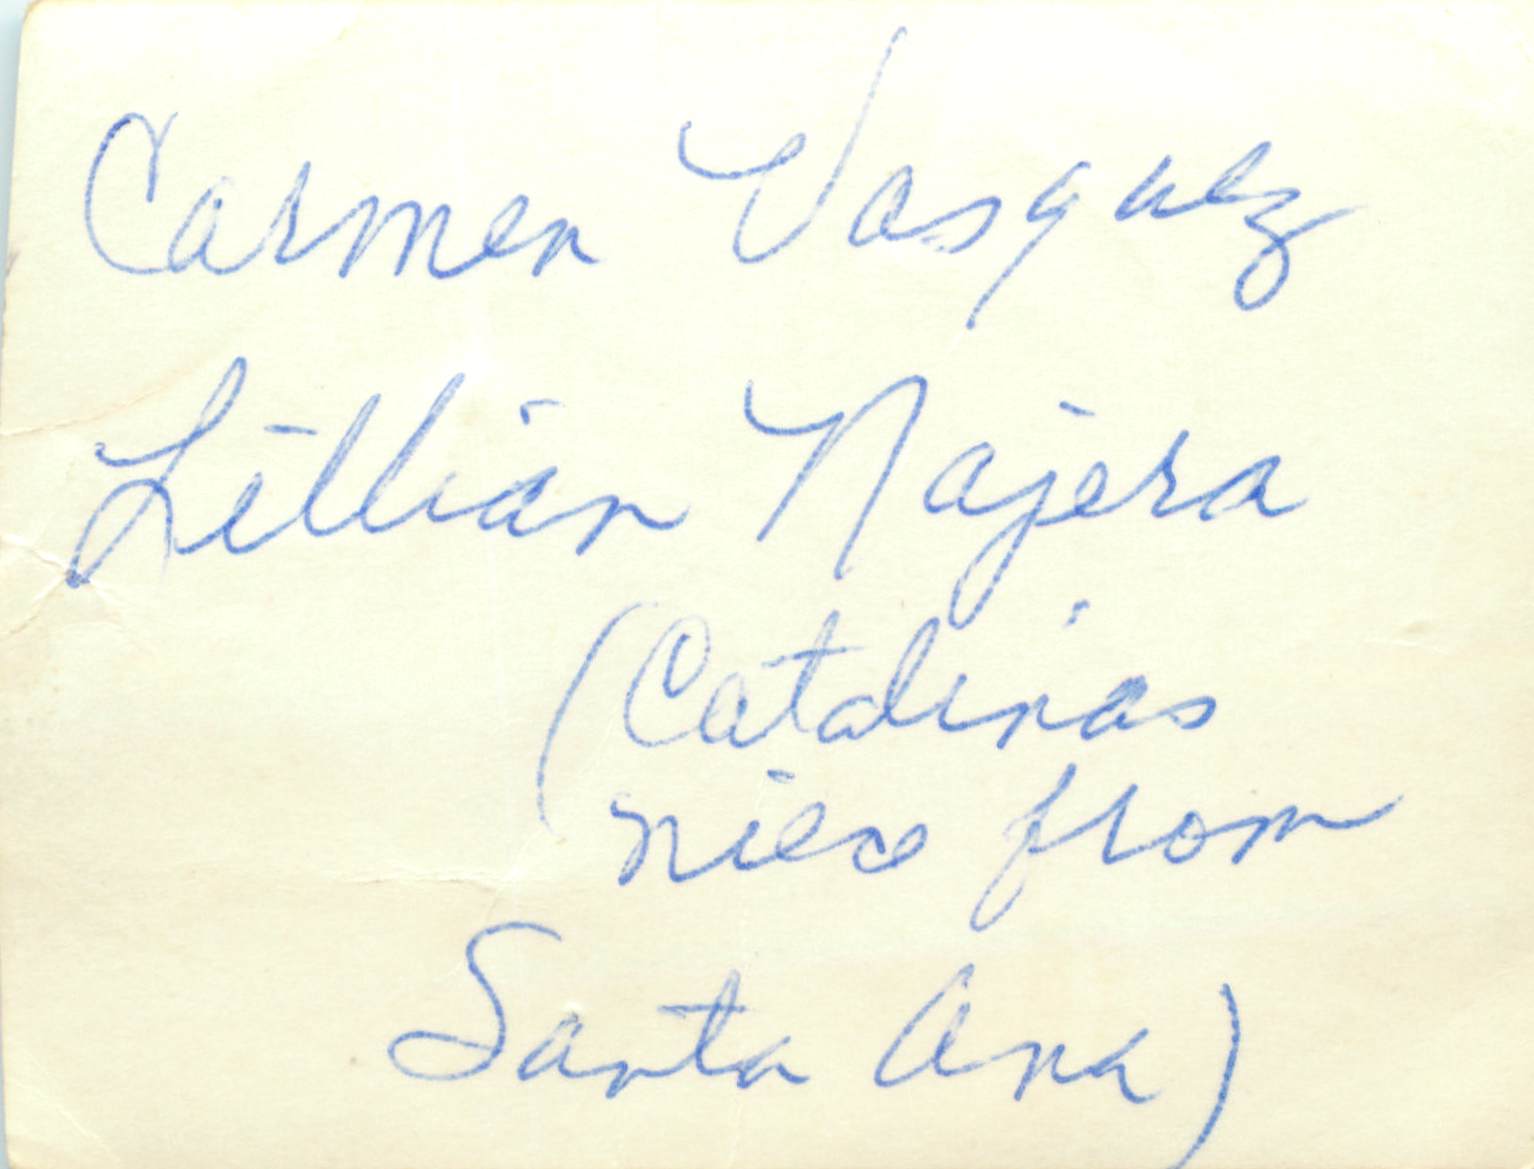 Carmen Vasquez
Lillian Najera
(Catalinas
niece from
Santa Ana)